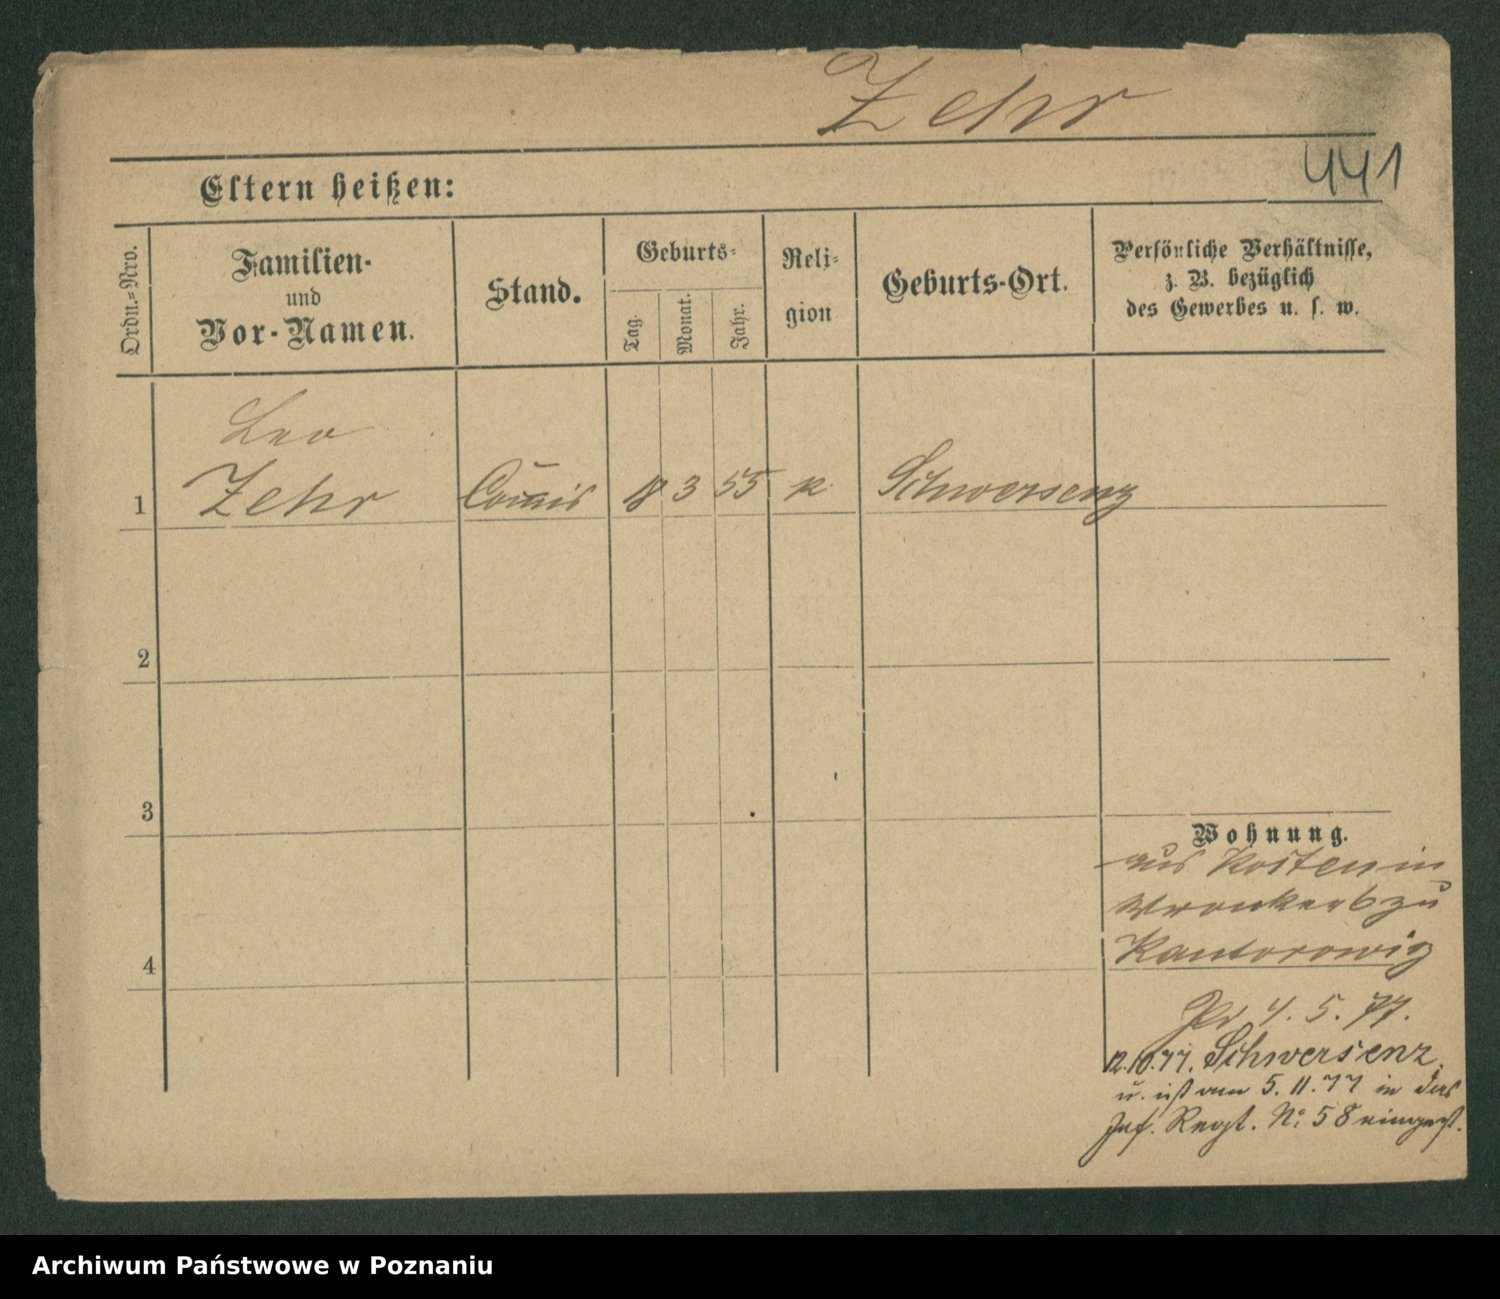 Zehr
441
Eltern heißen:
Ordn.=Nro.
Familien-
und
Vor-Namen.
Stand.
Geburts=
Tag.
Monat.
Jahr.
Reli=
gion
Geburts-Ort.
Persönliche Verhältnisse,
z. B. bezüglich
des Gewerbes u. s. w.
Leo
1 Zehr Com̄is 18 3 55 k. Schwersenz
2
3
4
Wohnung.
aus Kosten in
Wronker 6 zu
Kantorowicz
4. 5. 77.
12.10.77. Schwersenz.
u. ist am 5. 11. 77 in das
Inf. Regt. No: 58 eingest.
Archiwum Państwowe w Poznaniu